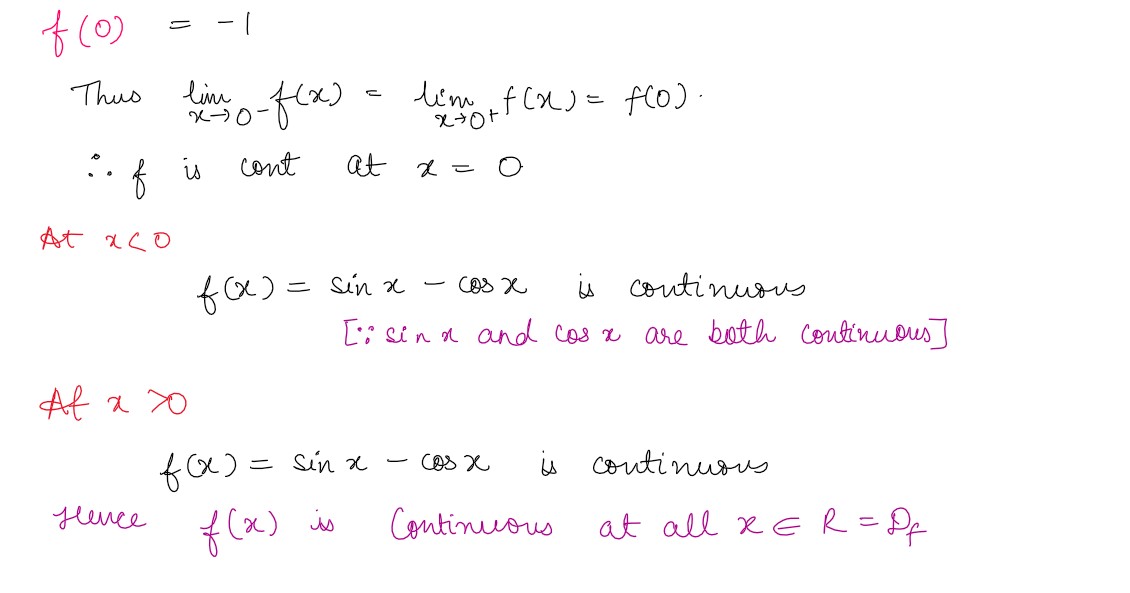 f(0) = -1
Thus lim x→0- f(x) = lim x→0+ f(x) = f(0).
∴ f is cont at x = 0
At x<0
f(x) = sin x - cos x is continuous
[∵ sin x and cos x are both continuous]
At x >0
f(x) = sin x - cos x is continuous
Hence f(x) is Continuous at all x ∈ R = Df